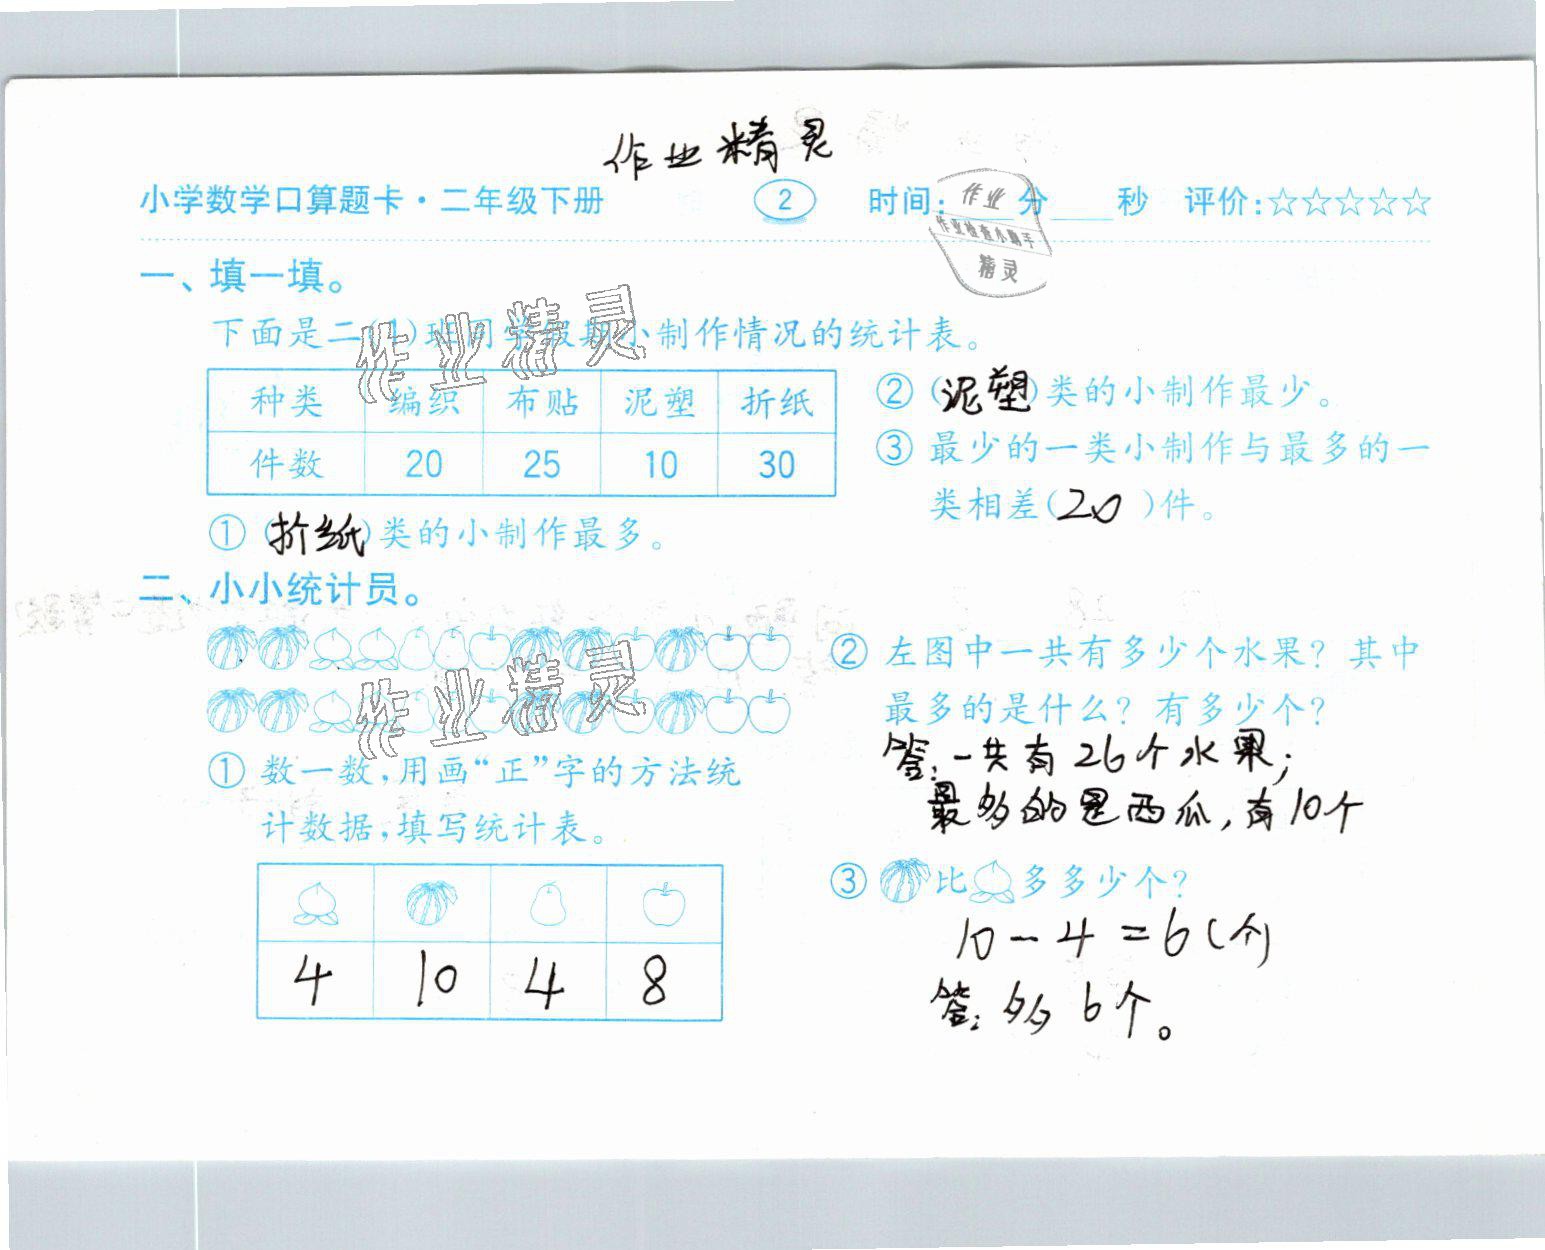 作业精灵
小学数学口算题卡·二年级下册 2 时间:____分____秒 评价:☆☆☆☆☆
作业
作业检查小助手
精灵
一、填一填。
下面是二(1)班同学假期小制作情况的统计表。
作业精灵
种类 编织 布贴 泥塑 折纸
件数 20 25 10 30
①(折纸)类的小制作最多。
②(泥塑)类的小制作最少。
③最少的一类小制作与最多的一
类相差(20)件。
二、小小统计员。
作业精灵
①数一数,用画“正”字的方法统
计数据,填写统计表。
4 10 4 8
②左图中一共有多少个水果?其中
最多的是什么?有多少个?
答:一共有26个水果;
最多的是西瓜,有10个
③比多多少个?
10-4=6(个)
答:多6个。